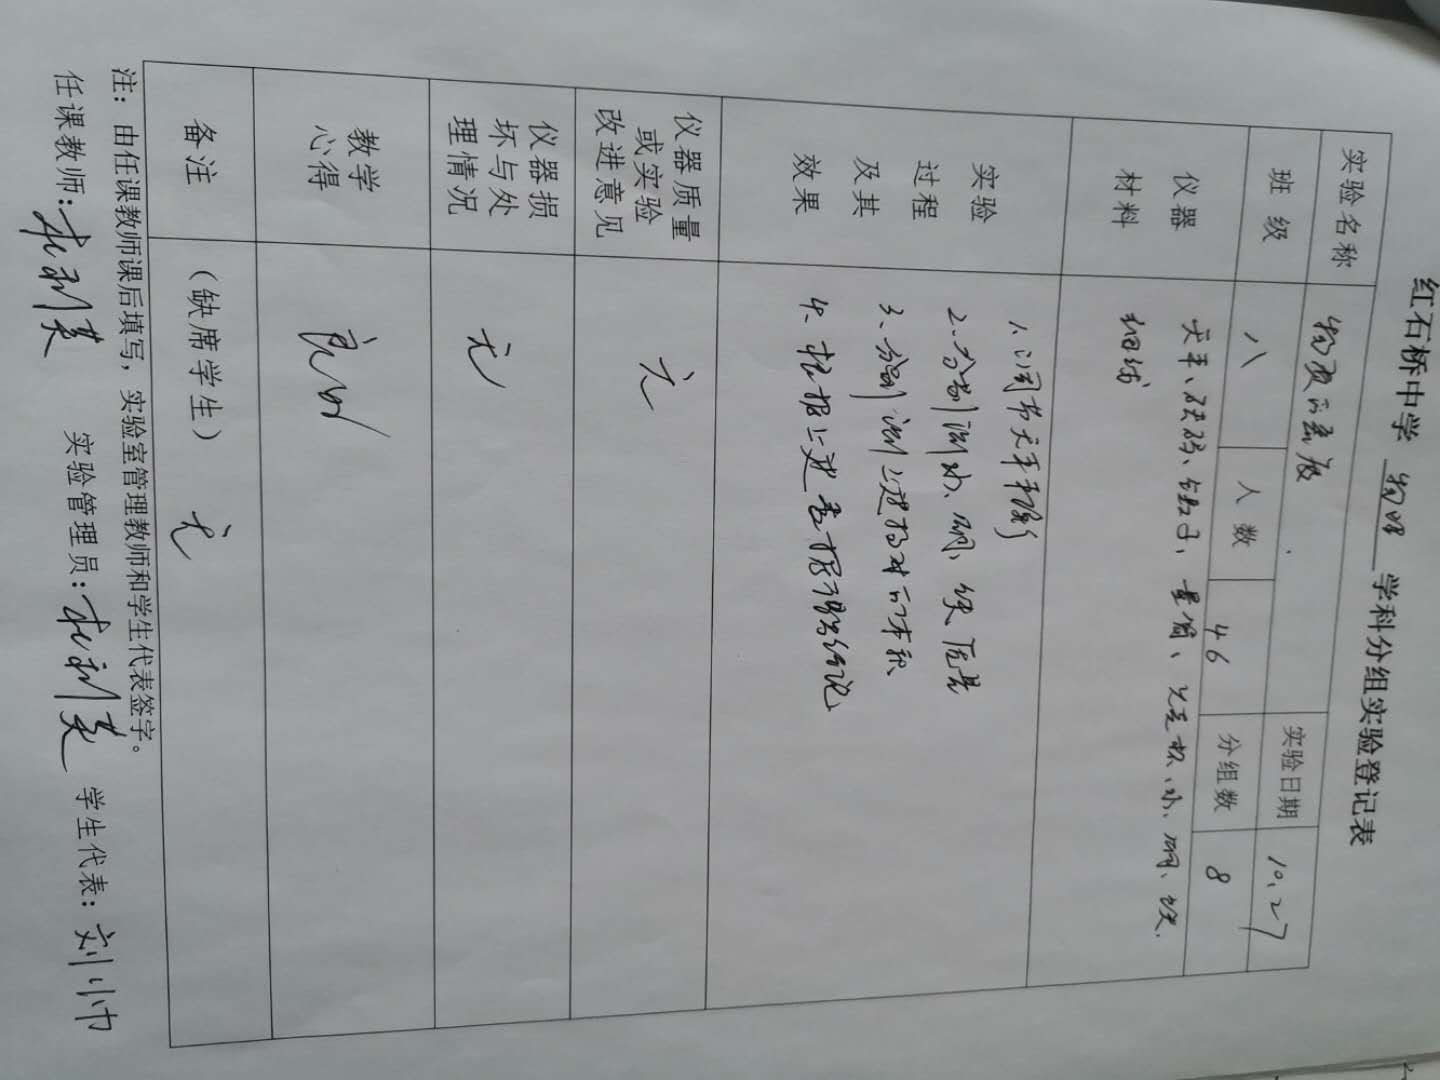 红石桥中学 物理 学科分组实验登记表
实验名称 物质的密度 实验日期 10.27
班 级 八 人 数 46 分组数 8
仪器 天平、砝码、镊子、量筒、 水、铜、铁、
材料 细线
实验 1、调节天平平衡
过程 2、分别测水、铜、铁质量
及其 3、分别测上述物体的体积
效果 4、根据上述数据得出结论
仪器质量
或实验 无
改进意见
仪器损
坏与处 无
理情况
教学 良好
心得
备注 (缺席学生) 无
注: 由任课教师课后填写, 实验室管理教师和学生代表签字。
任课教师: 实验管理员: 学生代表: 刘小巾